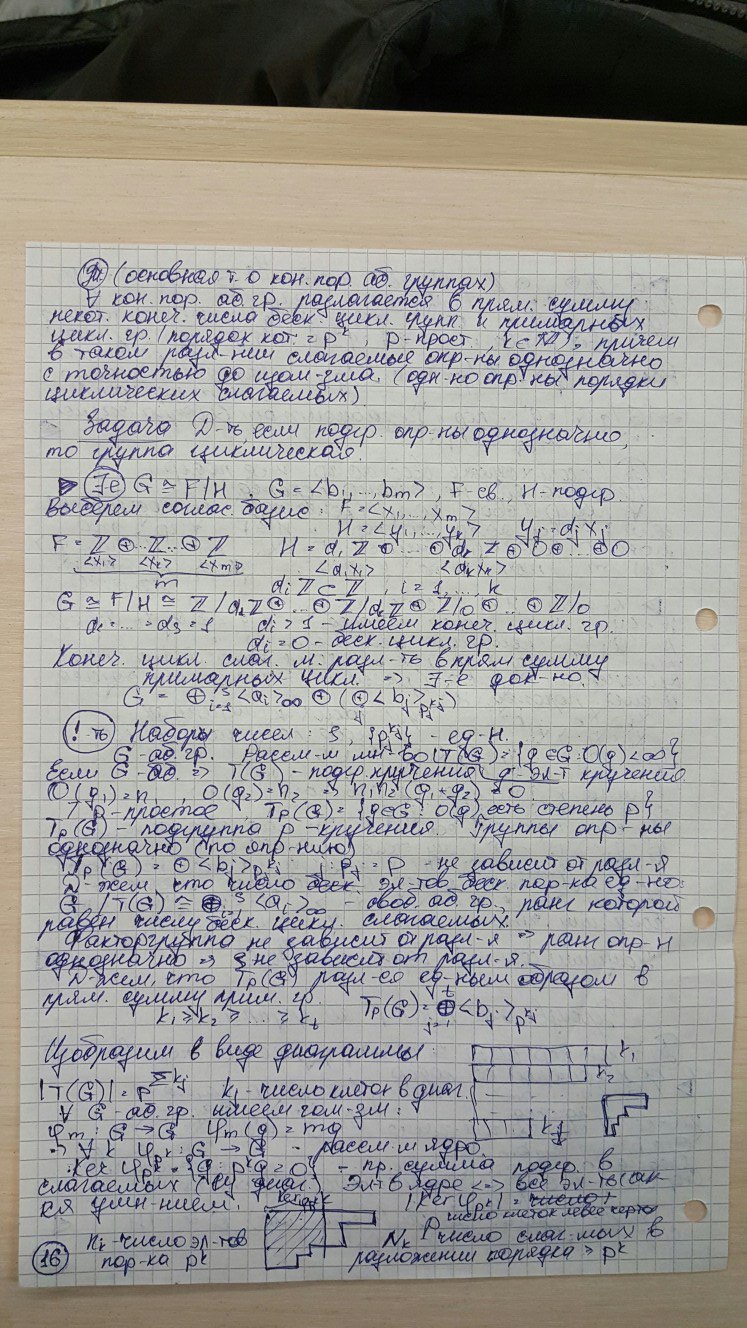 Т. (основная т. о кон. пор. аб. группах)
∀ кон. пор. аб. гр. разлагается в прям. сумму
некот. конеч. числа беск. цикл. групп и примарных
цикл. гр. (порядок кот. = p^k, p-прост., k∈ℕ), причем
в таком разл-нии слагаемые опр-ны однозначно
с точностью до изом-зма. (одн-но опр-ны порядки
циклических слагаемых)
Задача Д-ть, если подгр. опр-ны однозначно,
то группа циклическая.
▶ ∃е G ≅ F/H. G = <b₁, ..., bm>, F-св., H-подгр.
Выберем соглас. базис: F = <x₁, ..., xm>
H = <y₁, ..., yk> yj = dj xj
F = ℤ ⊕ ... ℤ ... ⊕ ℤ H = d₁ℤ ⊕ ... ⊕ dkℤ ⊕ 0 ⊕ ... ⊕ 0
<x₁> <xk> <xm> <d₁x₁> <dkxk>
m diℤ ⊂ ℤ, i = 1, ..., k
G ≅ F/H ≅ ℤ/d₁ℤ ⊕ ... ⊕ ℤ/dkℤ ⊕ ℤ/0 ⊕ ... ⊕ ℤ/0
d₁ = ... = ds = 1 di > 1 - имеем конеч. цикл. гр.
di = 0 - беск. цикл. гр.
Конеч. цикл. слаг. м. разл-ть в прям сумму
примарных цикл. => ∃-е док-но.
G = ⊕ᵢ₌₁ˢ <ai>∞ ⊕ (⊕j <bj> pj^kj)
!-ть Наборы чисел: s, {pj^kj} - ед-н.
G-аб. гр. Рассм-м мн-во T(G) = {g∈G: O(g) < ∞}
Если G-аб. => T(G) - подгр. кручения g - эл-т кручения
O(g₁) = n₁, O(g₂) = n₂ => n₁n₂(g₁+g₂) = 0
∀ p-простое, Tp(G) = {g∈G: O(g) есть степень p}
Tp(G) - подгруппа p-кручения. Группы опр-ны
однозначно (по опр-нию)
Tp(G) = ⊕ <bj> pj^kj j: pj = p - не зависит от разл-я
Д-жем, что число беск. эл-тов беск. пор-ка ед-но:
G/T(G) ≅ ⊕ᵢ₌₁ˢ <ai>∞ - своб. аб. гр., ранг которой
равен числу беск. цикл. слагаемых.
Факторгруппа не зависит от разл-я => ранг опр-н
однозначно => s не зависит от разл-я.
Д-жем, что Tp(G) разл-ся ед-ным образом в
прям. сумму прим. гр.
k₁ ≥ k₂ ≥ ... ≥ kt Tp(G) = ⊕ⱼ₌₁ᵗ <bj> p^kj
Изобразим в виде диаграммы k₁
k₂
|T(G)| = p^Σkj kj - число клеток в диаг.
∀ G-аб. гр. имеем гом-зм:
φm: G → G φm(g) = mg
∀ k φp^k: G → G - рассм-м ядро
Ker φp^k = {g: p^k g = 0} - пр. сумма подгр. в
слагаемых (су диаг.) Эл-т в ядре <=> все эл-ты
ся умн-нием. |Ker φp^k| = p
число клеток левее черты
nk - число эл-тов Nk - число слаг-мых в
пор-ка p^k разложении порядка ≥ p^k
16